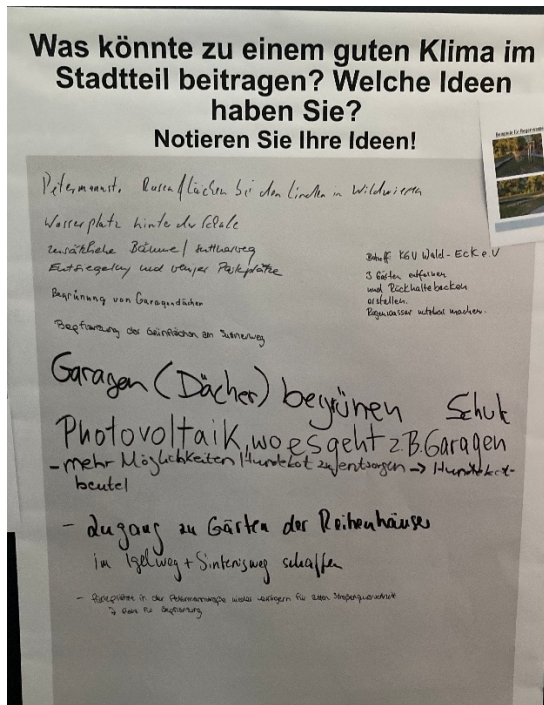 Was könnte zu einem guten Klima im
Stadtteil beitragen? Welche Ideen
haben Sie?
Notieren Sie Ihre Ideen!
Petermannst. Rasenflächen bei den Linden in Wildwiesen
Wasserplatz hinter der Schule
zusätzliche Bäume
Entsiegelung und weniger Parkplätze
Begrünung von Garagendächer
Bepflanzung der Grünflächen am
Betreff: KGV Wald-Eck e.V
3 Gärten entfernen
und Rückhaltebecken
erstellen.
Regenwasser nutzbar machen.
Garagen (Dächer) begrünen Schule
Photovoltaik, wo es geht z.B. Garagen
- mehr Möglichkeiten Hundekot zu entsorgen → Hundekot-
beutel
- Zugang zu Gärten der Reihenhäuser
im Igelweg + Sintenisweg schaffen
- Parkplätze in der Petermannstraße
→ Platz für Bepflanzung